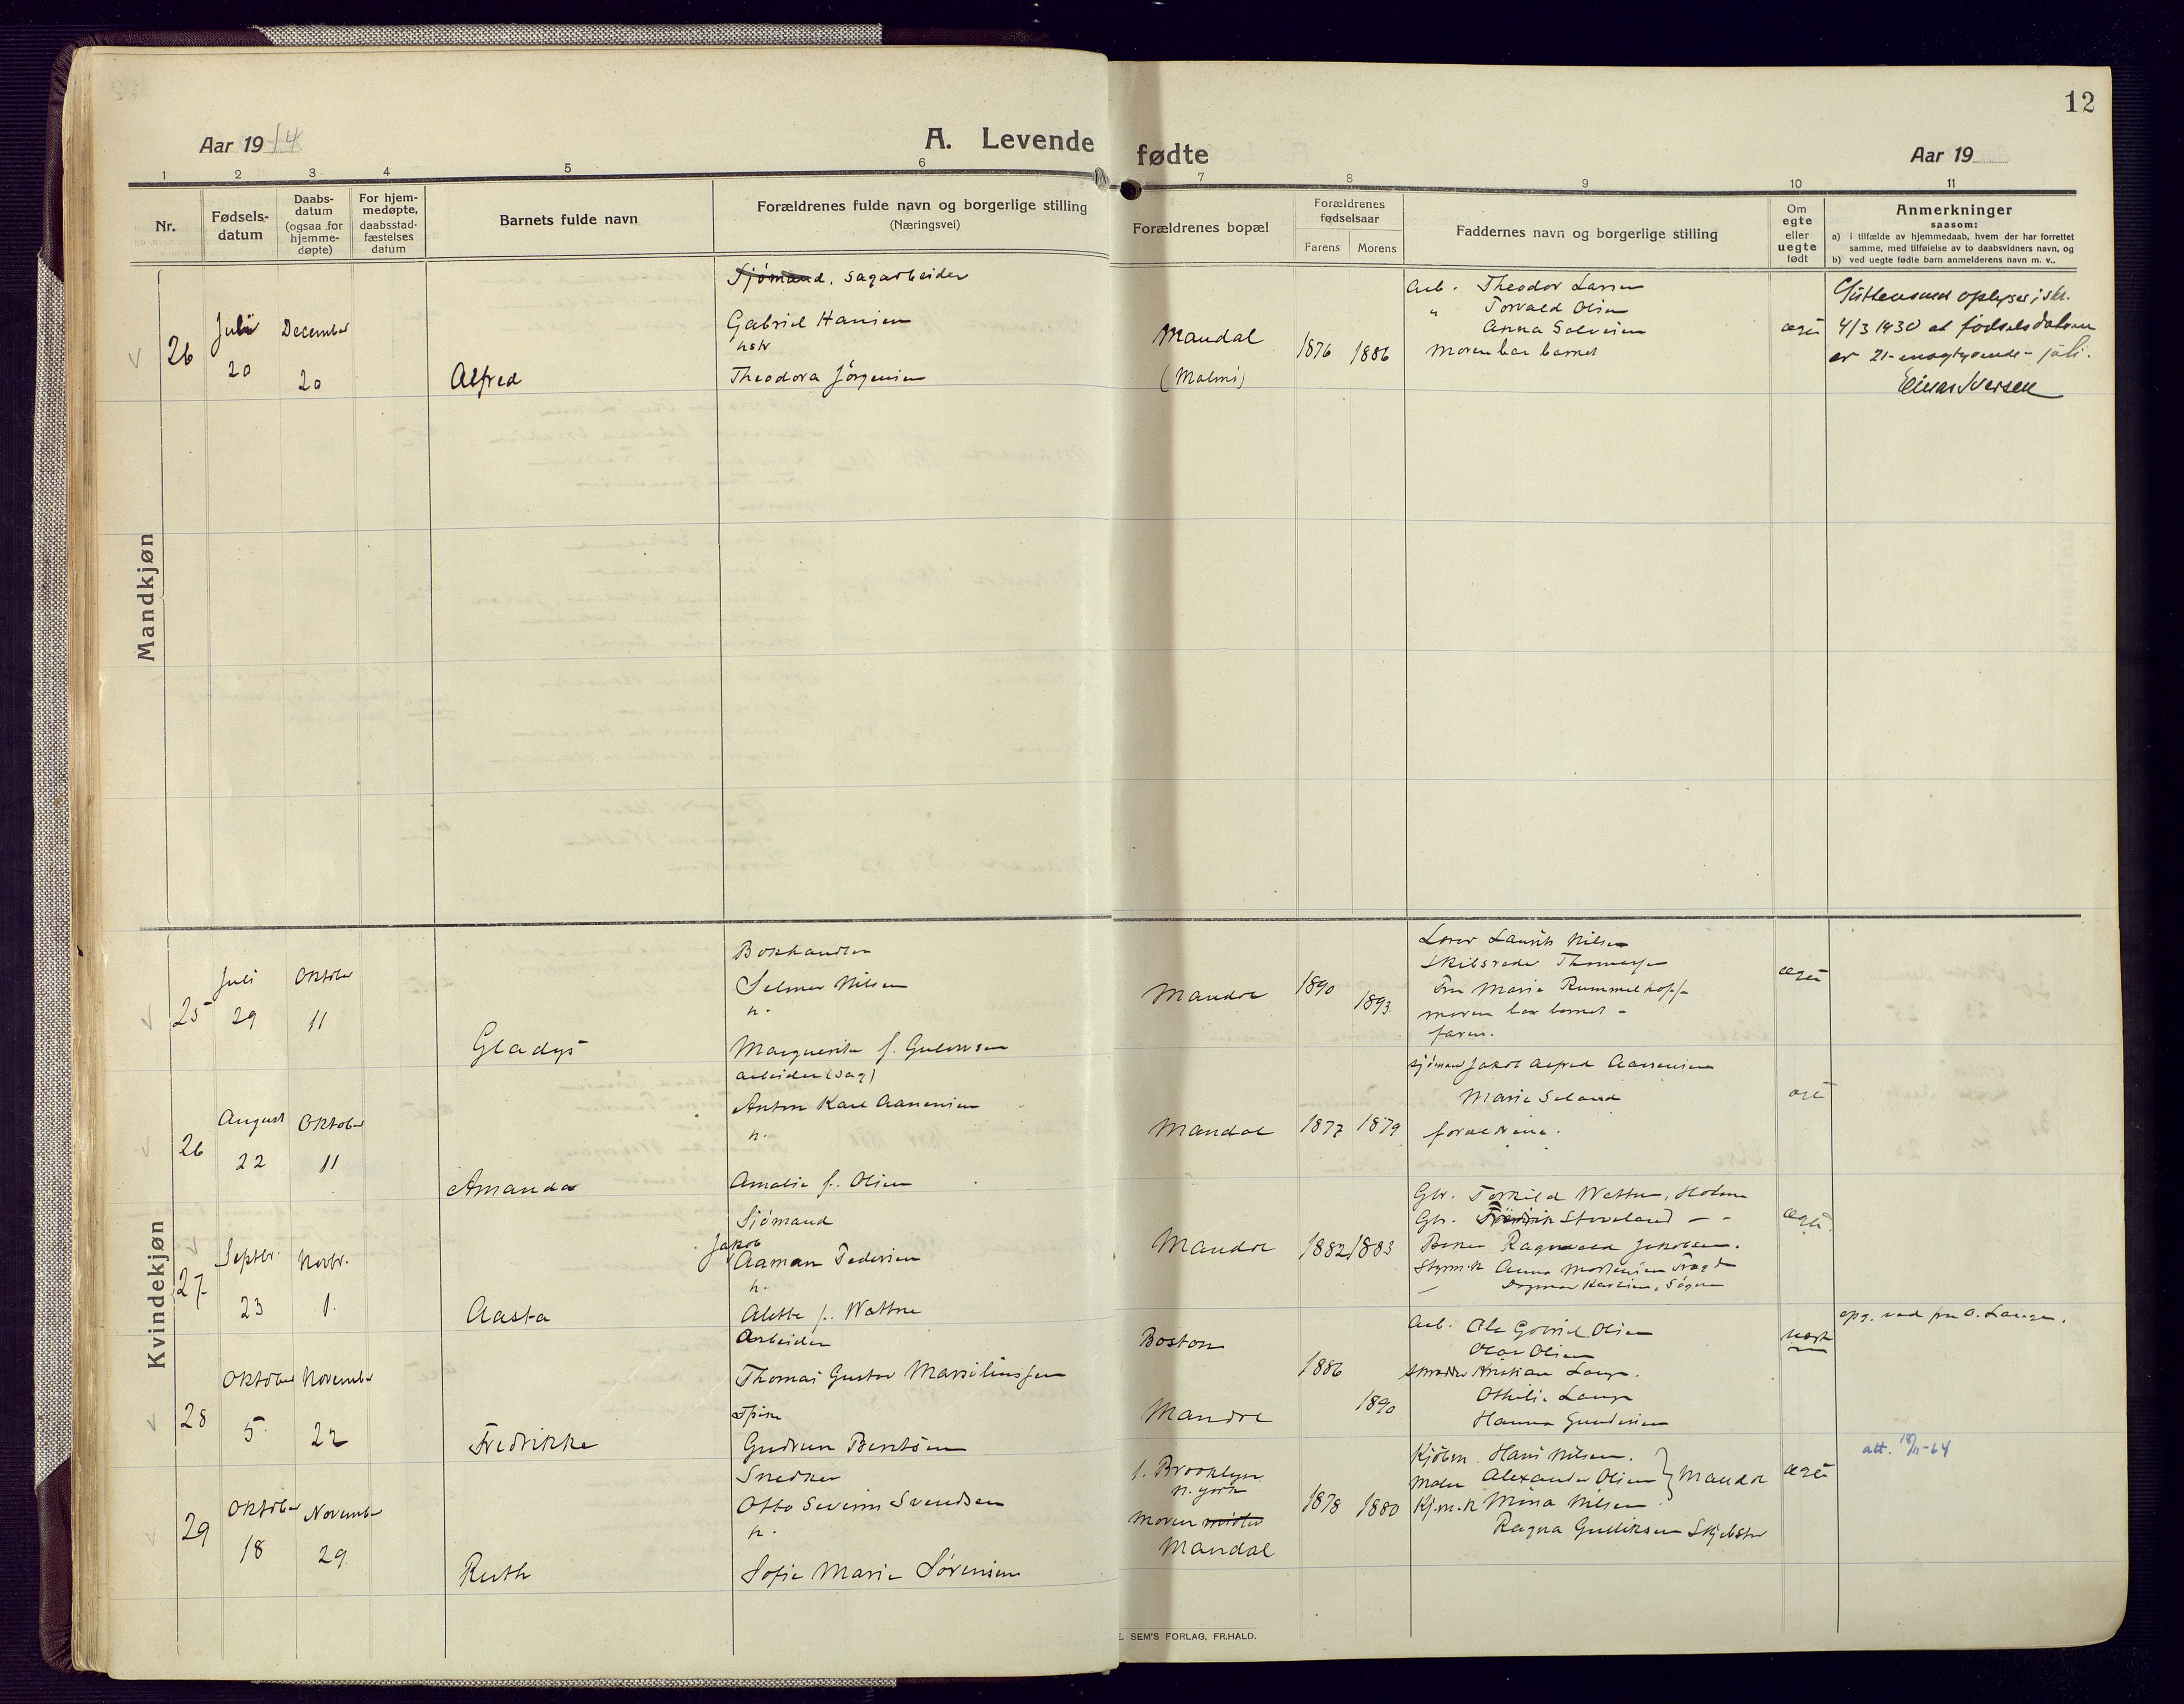 12
Aar 1914
A. Levende fødte
Aar 19
1 2 3 4 5 6 7 8 9 10 11
Nr.
Fødsels-
datum
Daabs-
datum
(ogsaa for
hjemme-
døpte)
For hjem-
medøpte,
daabsstad-
fæstelses
datum
Barnets fulde navn
Forældrenes fulde navn og borgerlige stilling
(Næringsvei)
Forældrenes bopæl
Forældrenes
fødselsaar
Farens Morens
Faddernes navn og borgerlige stilling
Om
egte
eller
uegte
født
Anmerkninger
saasom:
a) i tilfælde av hjemmedaab, hvem der har forrettet
samme, med tilføielse av to daabsvidners navn, og
b) ved uegte fødte barn anmelderens navn m. v..
Mandkjøn
26
Juli
20
December
20
Alfred
Sjömand. Sagarbeider
Gabriel Hansen
hstr
Theodora Jörgensen
Mandal
(Malmö)
1876 1886
Arb. Theodor Larsen
" Torvald Olsen
Anna Solveien
Moren bar barnet
ægte
opplyses i skr.
4/3 1930 at fødselsdatoen
er 21-enogtyvende- juli.
Einar Iversen
Kvindekjøn
25
Juli
29
Oktober
11
Gladys
Bokhandler
Selmer Nilsen
h.
Marguerite f. Gulowsen
Mandal
1890
1893
Lauritz Nilsen
Skibsreder Thomassen
Fru Marie Rummelhoff
moren bar barnet -
faren.
ægte
26
August
22
Oktober
11
Amanda
arbeider (sag)
Anton Karl Aanensen
h.
Amalie f. Olsen
Mandal
1877 1879
sjömand Jakob Alfred Aanensen
Marie Seland
forældrene.
ægte
27
Septbr.
23
Novbr.
1.
Aasta
Sjömand
Jakob
Aaman Pedersen
h.
Alette f. Wattne
Mandal
1882 1883
Gbr. Torkild Wattne, Holum
Gbr. Fredrik Stoveland - -
Ragnvald Jakobsen.
Anna Mortensen
Dagmar Karlsen, Søgne
ægte
28
Oktober
5.
November
22
Fredrikke
Arbeider
Thomas Gustav Marsiliussen
Spike
Gudrun Berntsen
Boston
Mandal
1886
1890
Arb. Ole Gabriel Olsen
Olav Olsen
Kristian Lange.
Othilie Lange
Hanna Gundersen
uegte
opg. ved fru O. Lange.
29
Oktober
18
November
29
Ruth
Snedker
Otto Severin Svendsen
h.
Sofie Marie Sørensen
f. Brooklyn
N. York
Moren
Mandal
1878 1880
Kjöbm. Hans Nilsen.
Maler Alexander Olsen
Kj.m.k Mina Nilsen
Mandal
Ragna Gulliksen
ægte
att. 18/11-64
E. SEM'S FORLAG, FR.HALD.